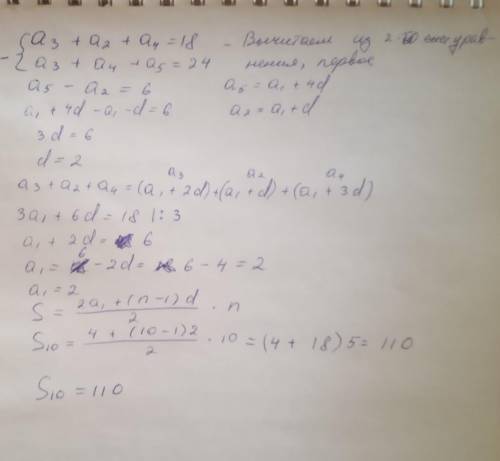 {a3 + a2 + a4 = 18 - Вычитаем из 2-го урав-
- {a3 + a4 + a5 = 24 нения, первое
a5 - a2 = 6 a5 = a1 + 4d
a1 + 4d - a1 - d = 6 a2 = a1 + d
3d = 6
d = 2
a3 a2 a4
a3 + a2 + a4 = (a1 + 2d) + (a1 + d) + (a1 + 3d)
3a1 + 6d = 18 |: 3
a1 + 2d = 6
a1 = 6 - 2d = 6 - 4 = 2
a1 = 2
S = (2a1 + (n-1)d)/2 · n
S10 = (4 + (10-1)2)/2 · 10 = (4 + 18) 5 = 110
S10 = 110